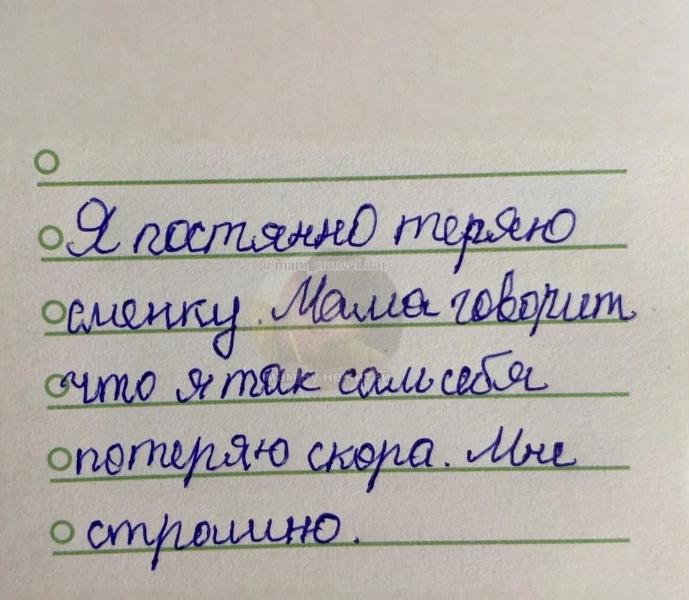 Я постянно теряю
сменку. Мама говорит
что я так сам себя
потеряю скора. Мне
страшно.